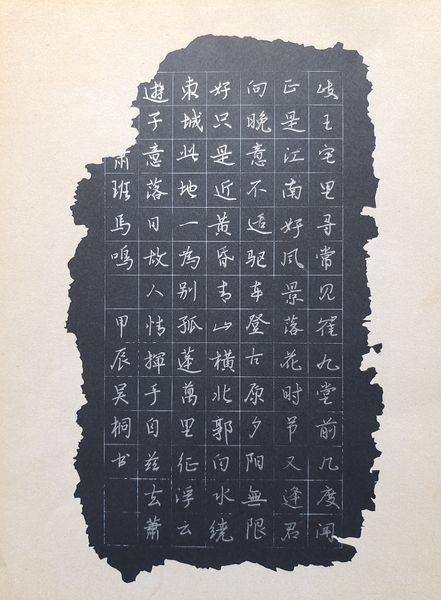 岐王宅里寻常见崔九堂前几度闻
正是江南好风景落花时节又逢君
向晚意不适驱车登古原夕阳無限
好只是近黄昏青山横北郭白水绕
東城此地一為别孤蓬萬里征浮云
遊子意落日故人情揮手自兹去蕭
萧班馬鳴 甲辰吴桐书